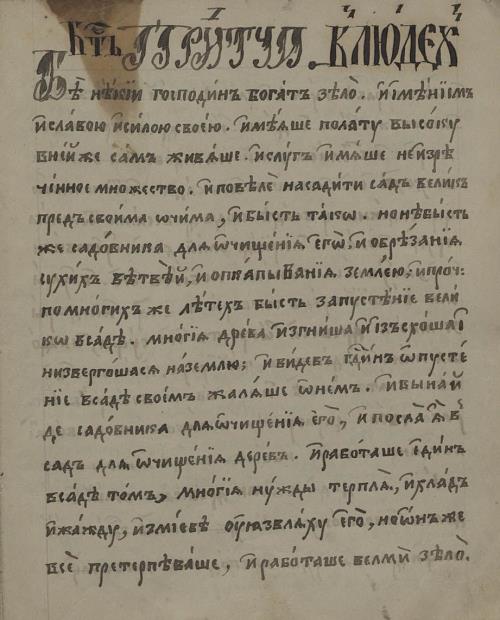 ПРИТЧИ. В ЛЮДЕХ
Бѣ нѣкїи господинъ богатъ ѕѣло. и имѣнїемъ
и славою и силою своею. имѣяше полату высоку
в ней же самъ живяше. и слугъ имяше неизрѣ
ченное множество. и повелѣ насадити садъ великъ
предъ своима очима, и бысть тако. но не бысть
же садовника для ѡчищенїя егѡ, и обрѣзанїя
сухихъ вѣтвей, и опкапыванїя землею, и проч:
по многихъ же лѣтехъ бысть запустѣнїе вели
ко в садѣ. многїя древа изгниша и изъсхоша и
низвергошася на землю; и видевъ гдинъ ѡпустѣ
нїе в садѣ своемъ жаляше ѡ немъ. и вынай
де садовника для ѡчищенїя его, и посла я в
садъ для ѡчищенїя деревъ. и работаше единъ
в садѣ томъ, многїя нужды терпля, и хладъ
и жажду, и змїевѣ оуязвляху его, но ѡнъ же
все претерпѣваше, и работаше велми ѕѣло.